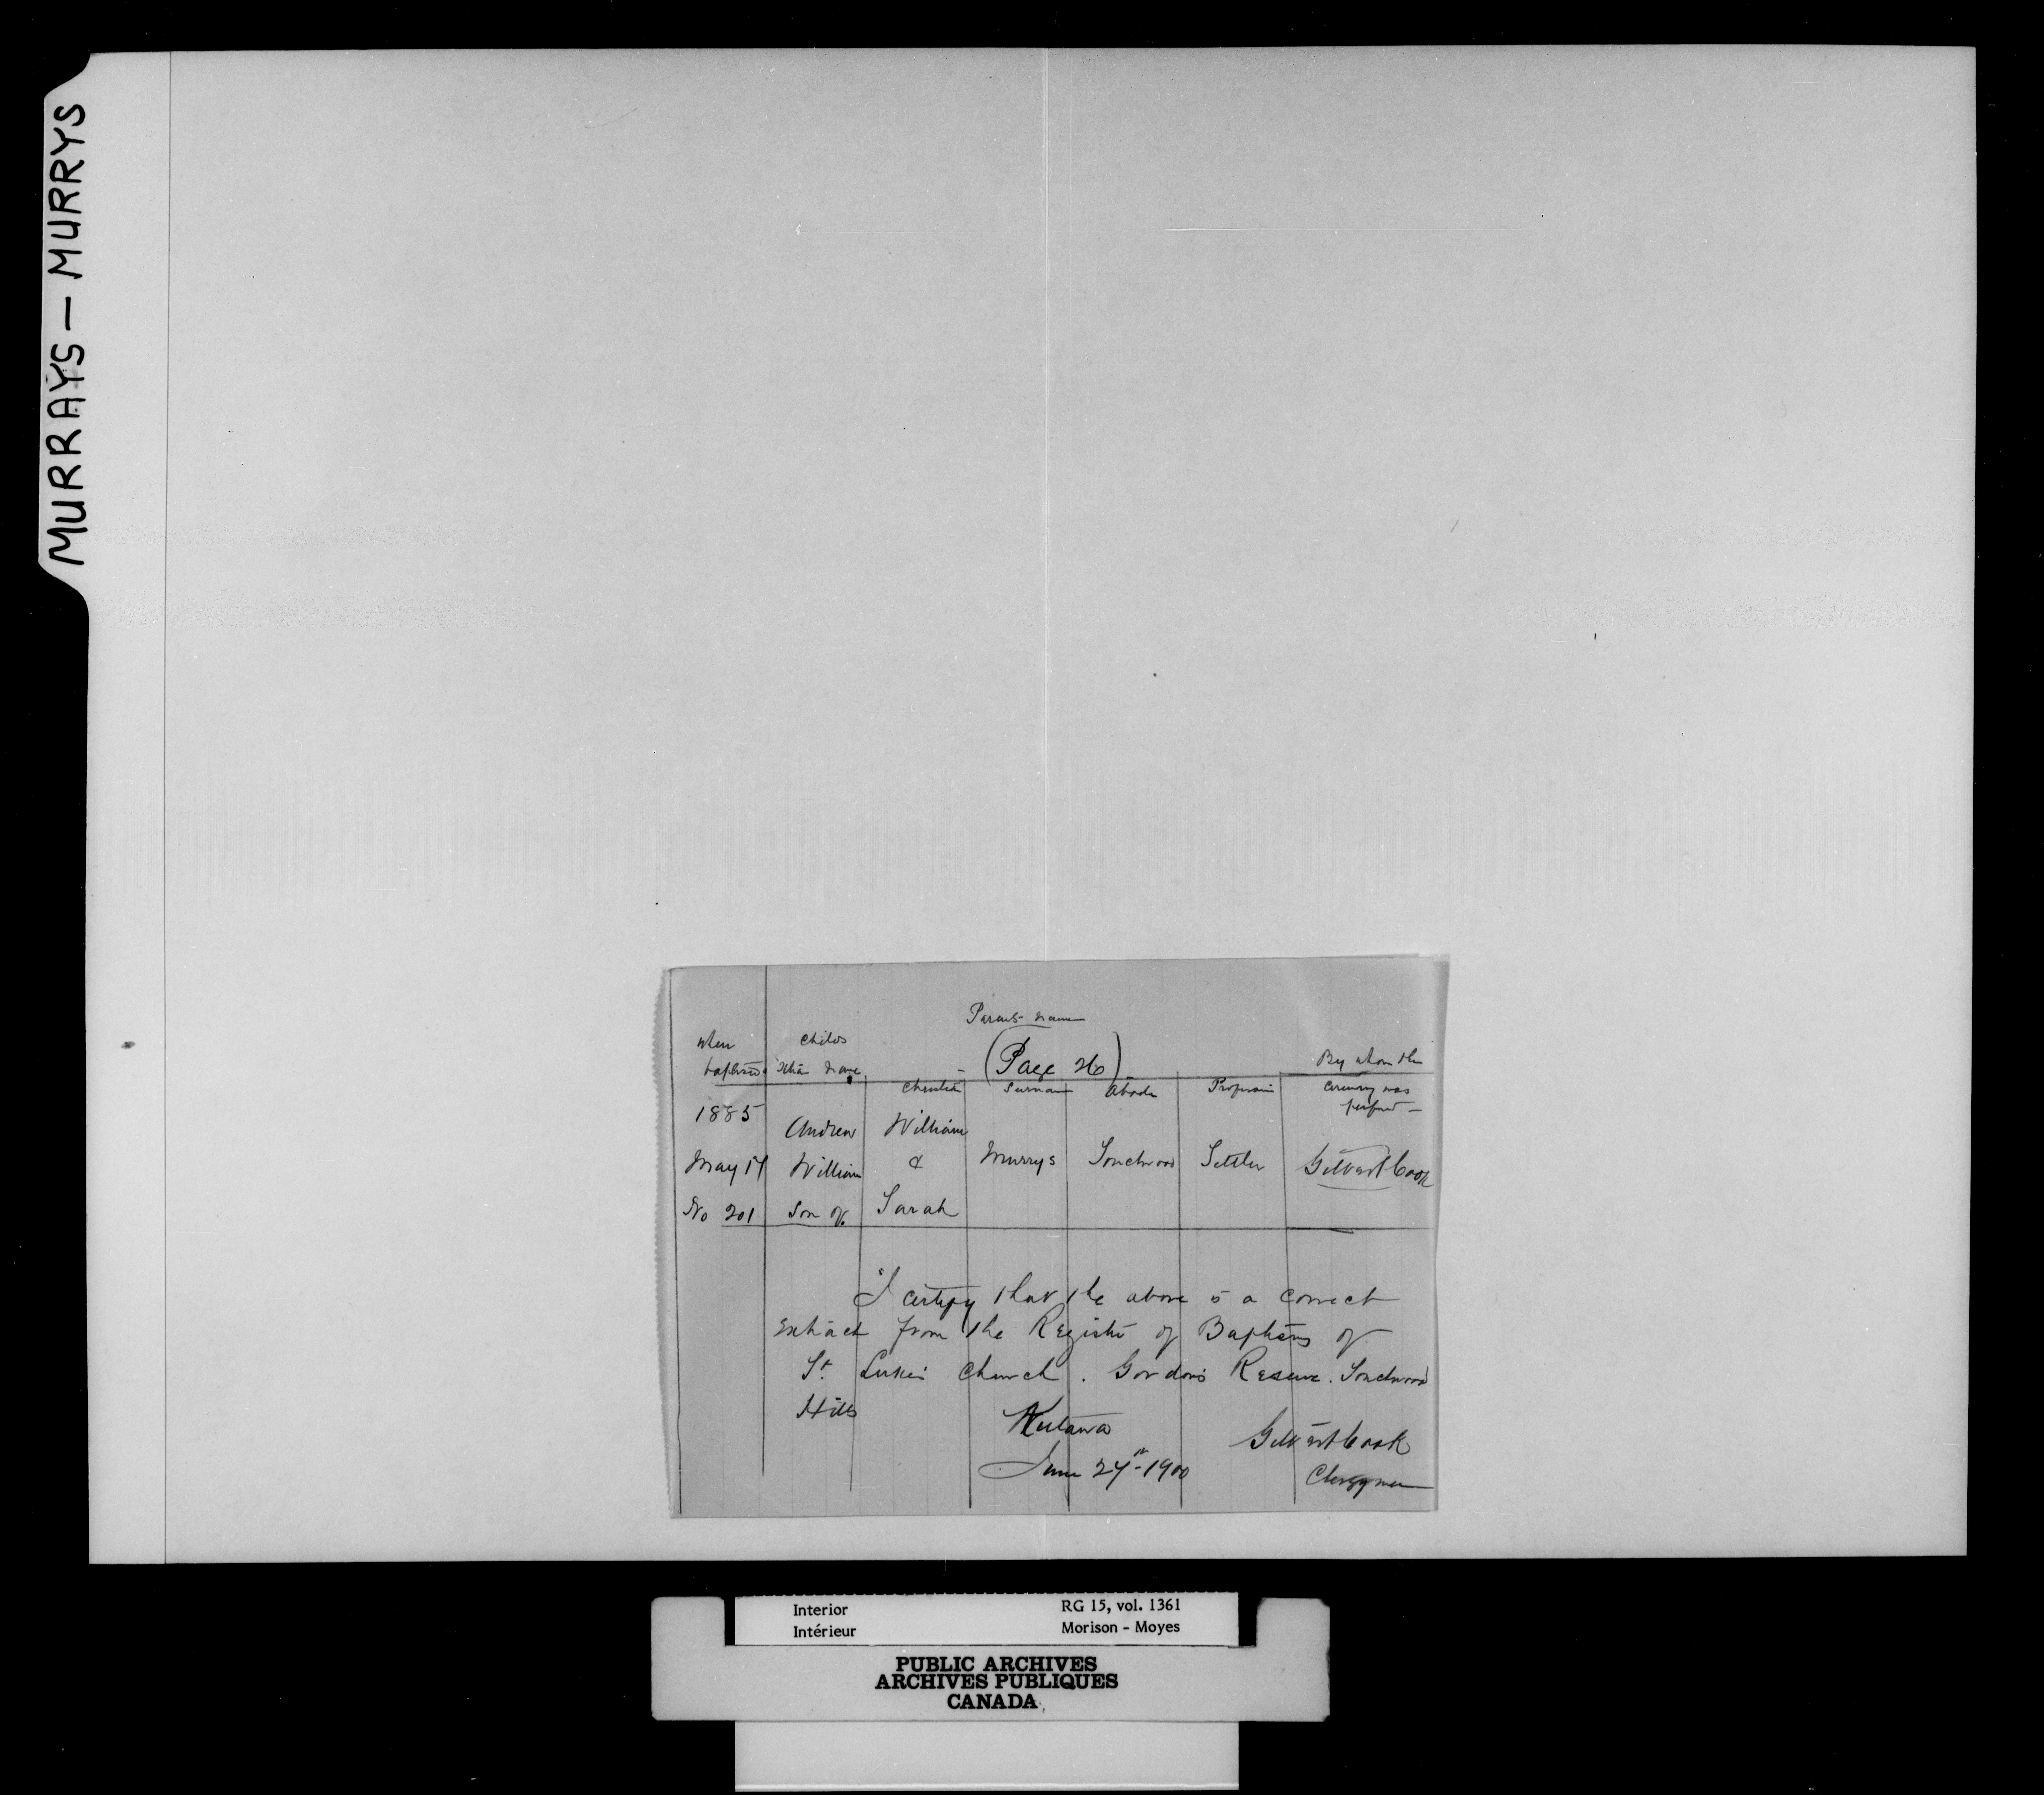 MURRAYS — MURRYS
Parents name
when childs
baptised Xtian name (Page 26) By whom the
Christian Surname Abode Profession Ceremony was
performed
1885 Andrew William
May 17 William & Murrys Touchwood Settler Gilbert Cook
No 201 Son of Sarah
I certify that the above is a correct
extract from the Register of Baptisms of
St. Luke's Church. Gordon's Reserve. Touchwood
Hills Kutawa Gilbert Cook
June 27th 1900 Clergyman
Interior RG 15, vol. 1361
Intérieur Morison - Moyes
PUBLIC ARCHIVES
ARCHIVES PUBLIQUES
CANADA